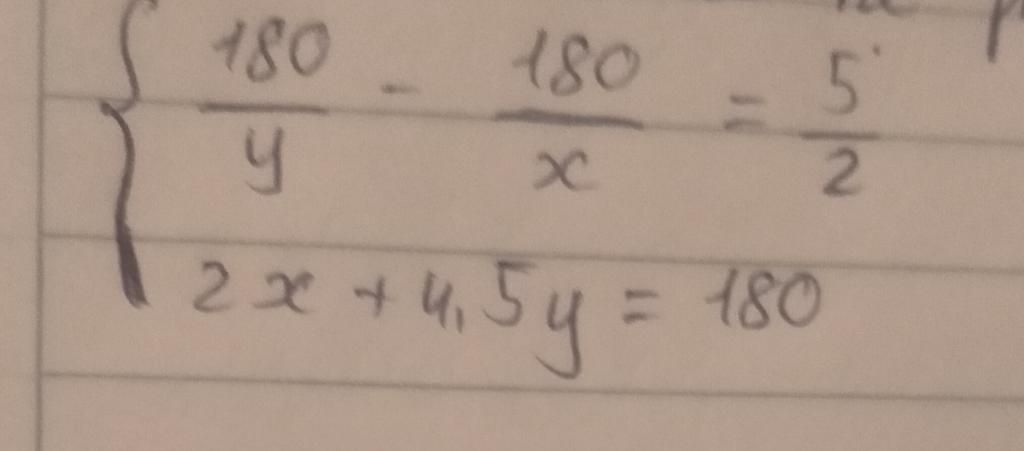 180/y - 180/x = 5/2
2x + 4,5y = 180